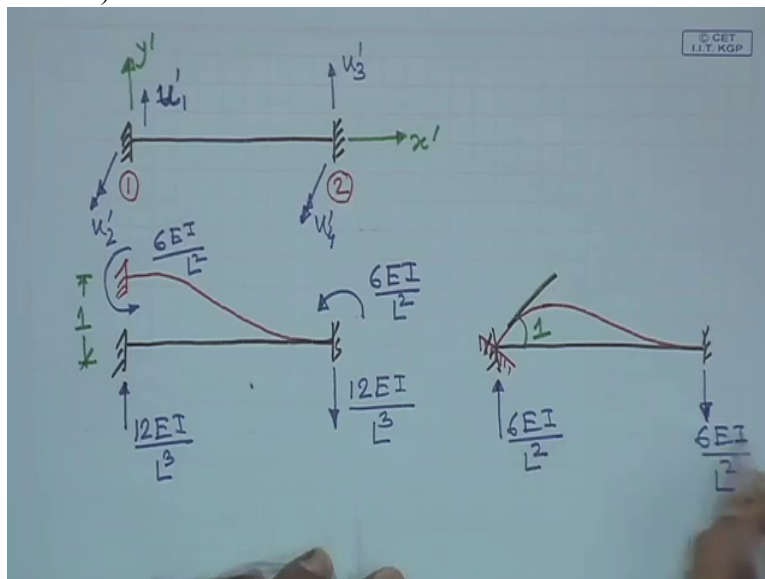 © CET
I.I.T. KGP
y'
u'₁
u'₃
x'
①
②
u'₂
u'₄
6EI
L²
6EI
L²
1
1
12EI
L³
12EI
L³
6EI
L²
6EI
L²